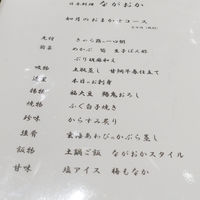 日本料理 ながおか
如月のおまかせコース
先付 きから豚の一口椀
前菜 めかぶ 筍 生子ばん酢
ぶり胡麻和え
吸物 土瓶蒸し 甘鯛早春仕立て
造里 本日のお刺身
揚物 福大豆 鶏鬼おろし
焼物 ふぐ白子焼き
珍味 からすみ炙り
強肴 雲海あわびのかぶら蒸し
飯物 土鍋ご飯 ながおかスタイル
甘味 塩アイス 苺もなか